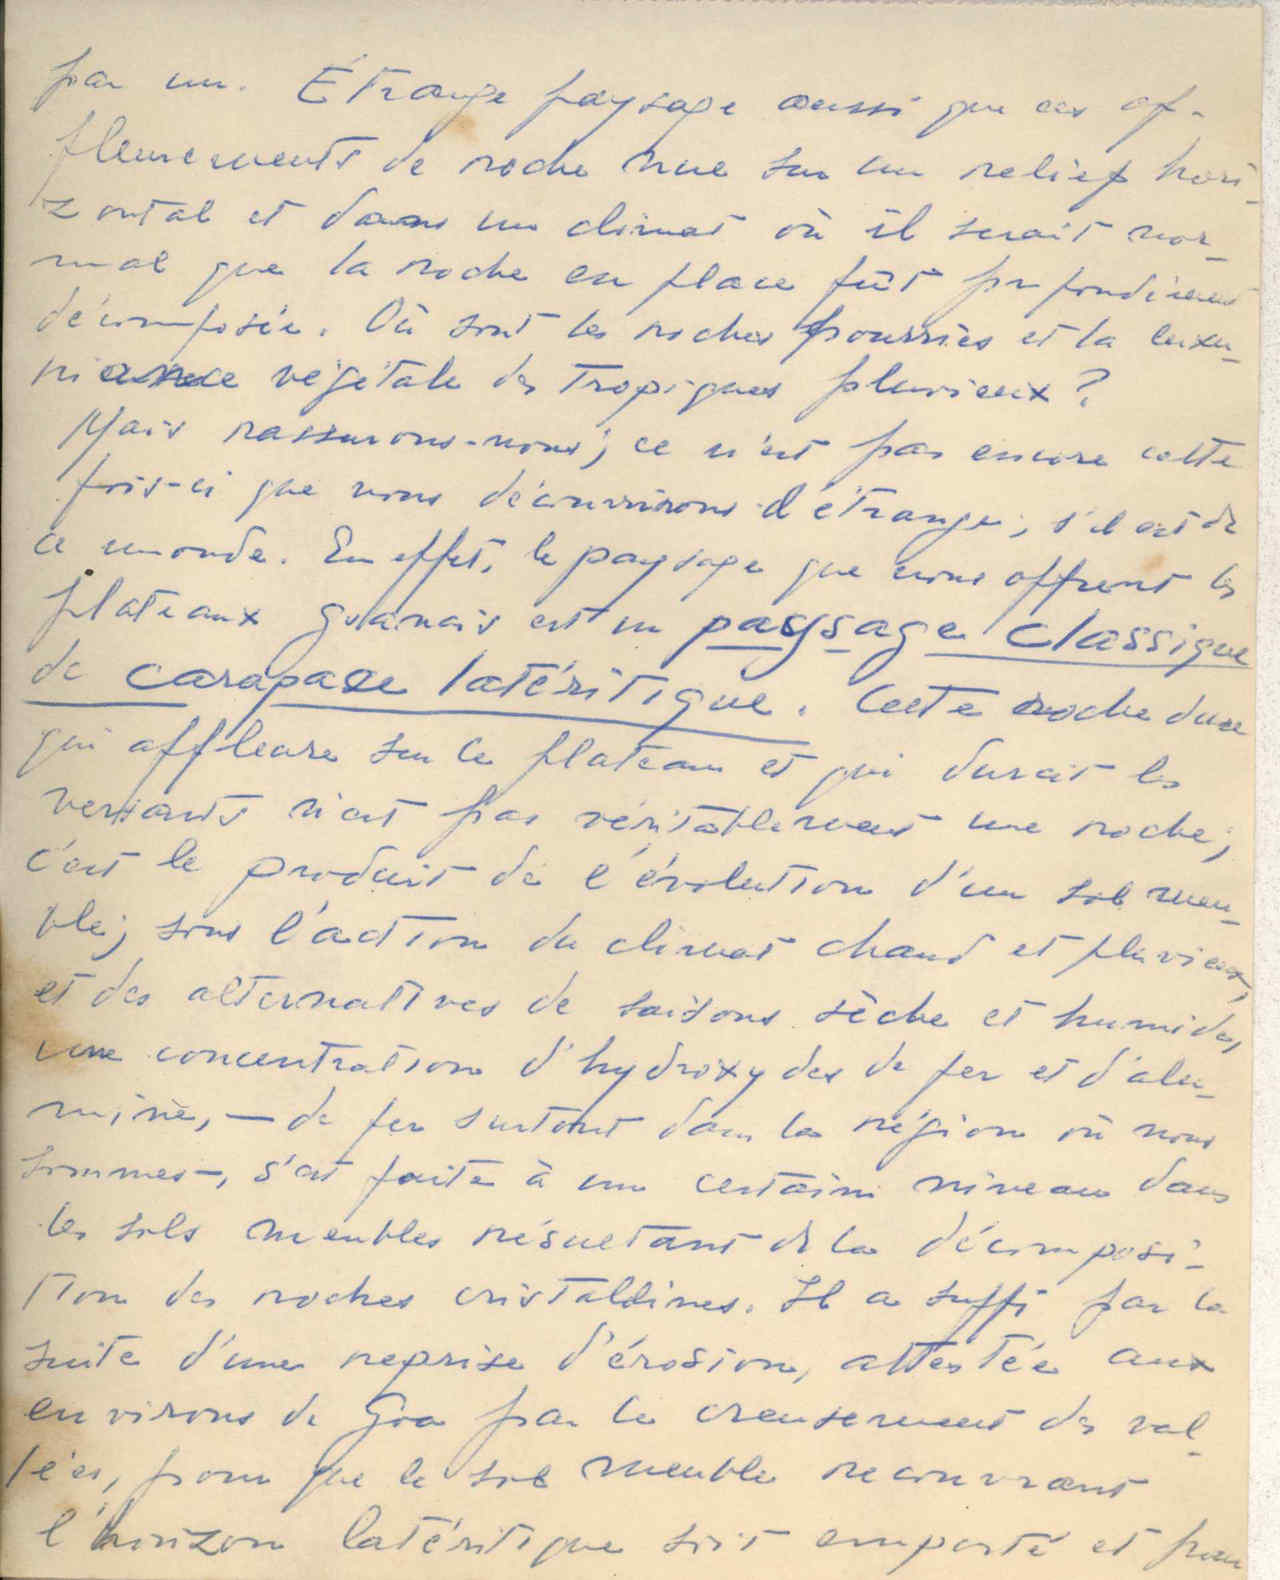 par un. Étrange paysage aussi que ces af-
fleurements de roche nue sur un relief hori-
zontal et dans un climat où il serait nor-
mal que la roche en place fût profondément
décomposée. Où sont les roches pourries et la luxu-
riance végétale des Tropiques pluvieux ?
Mais rassurons-nous ; ce n'est pas encore cette
fois-ci que nous découvrirons l'étrange, s'il est de
ce monde. En effet, le paysage que nous offrent les
plateaux goanais est un paysage classique
de carapace latéritique. Cette roche dure
qui affleure sur le plateau et qui durcit les
versants n'est pas véritablement une roche ;
c'est le produit de l'évolution d'un sol meu-
ble ; sous l'action du climat chaud et pluvieux,
et des alternatives de saisons sèche et humides,
une concentration d'hydroxydes de fer et d'alu-
mine, — de fer surtout dans la région où nous
sommes —, s'est faite à un certain niveau dans
les sols meubles résultant de la décomposi-
tion des roches cristallines. Il a suffi par la
suite d'une reprise d'érosion, attestée aux
environs de Goa par le creusement des val-
lées, pour que le sol meuble recouvrant
l'horizon latéritique soit emporté et pour